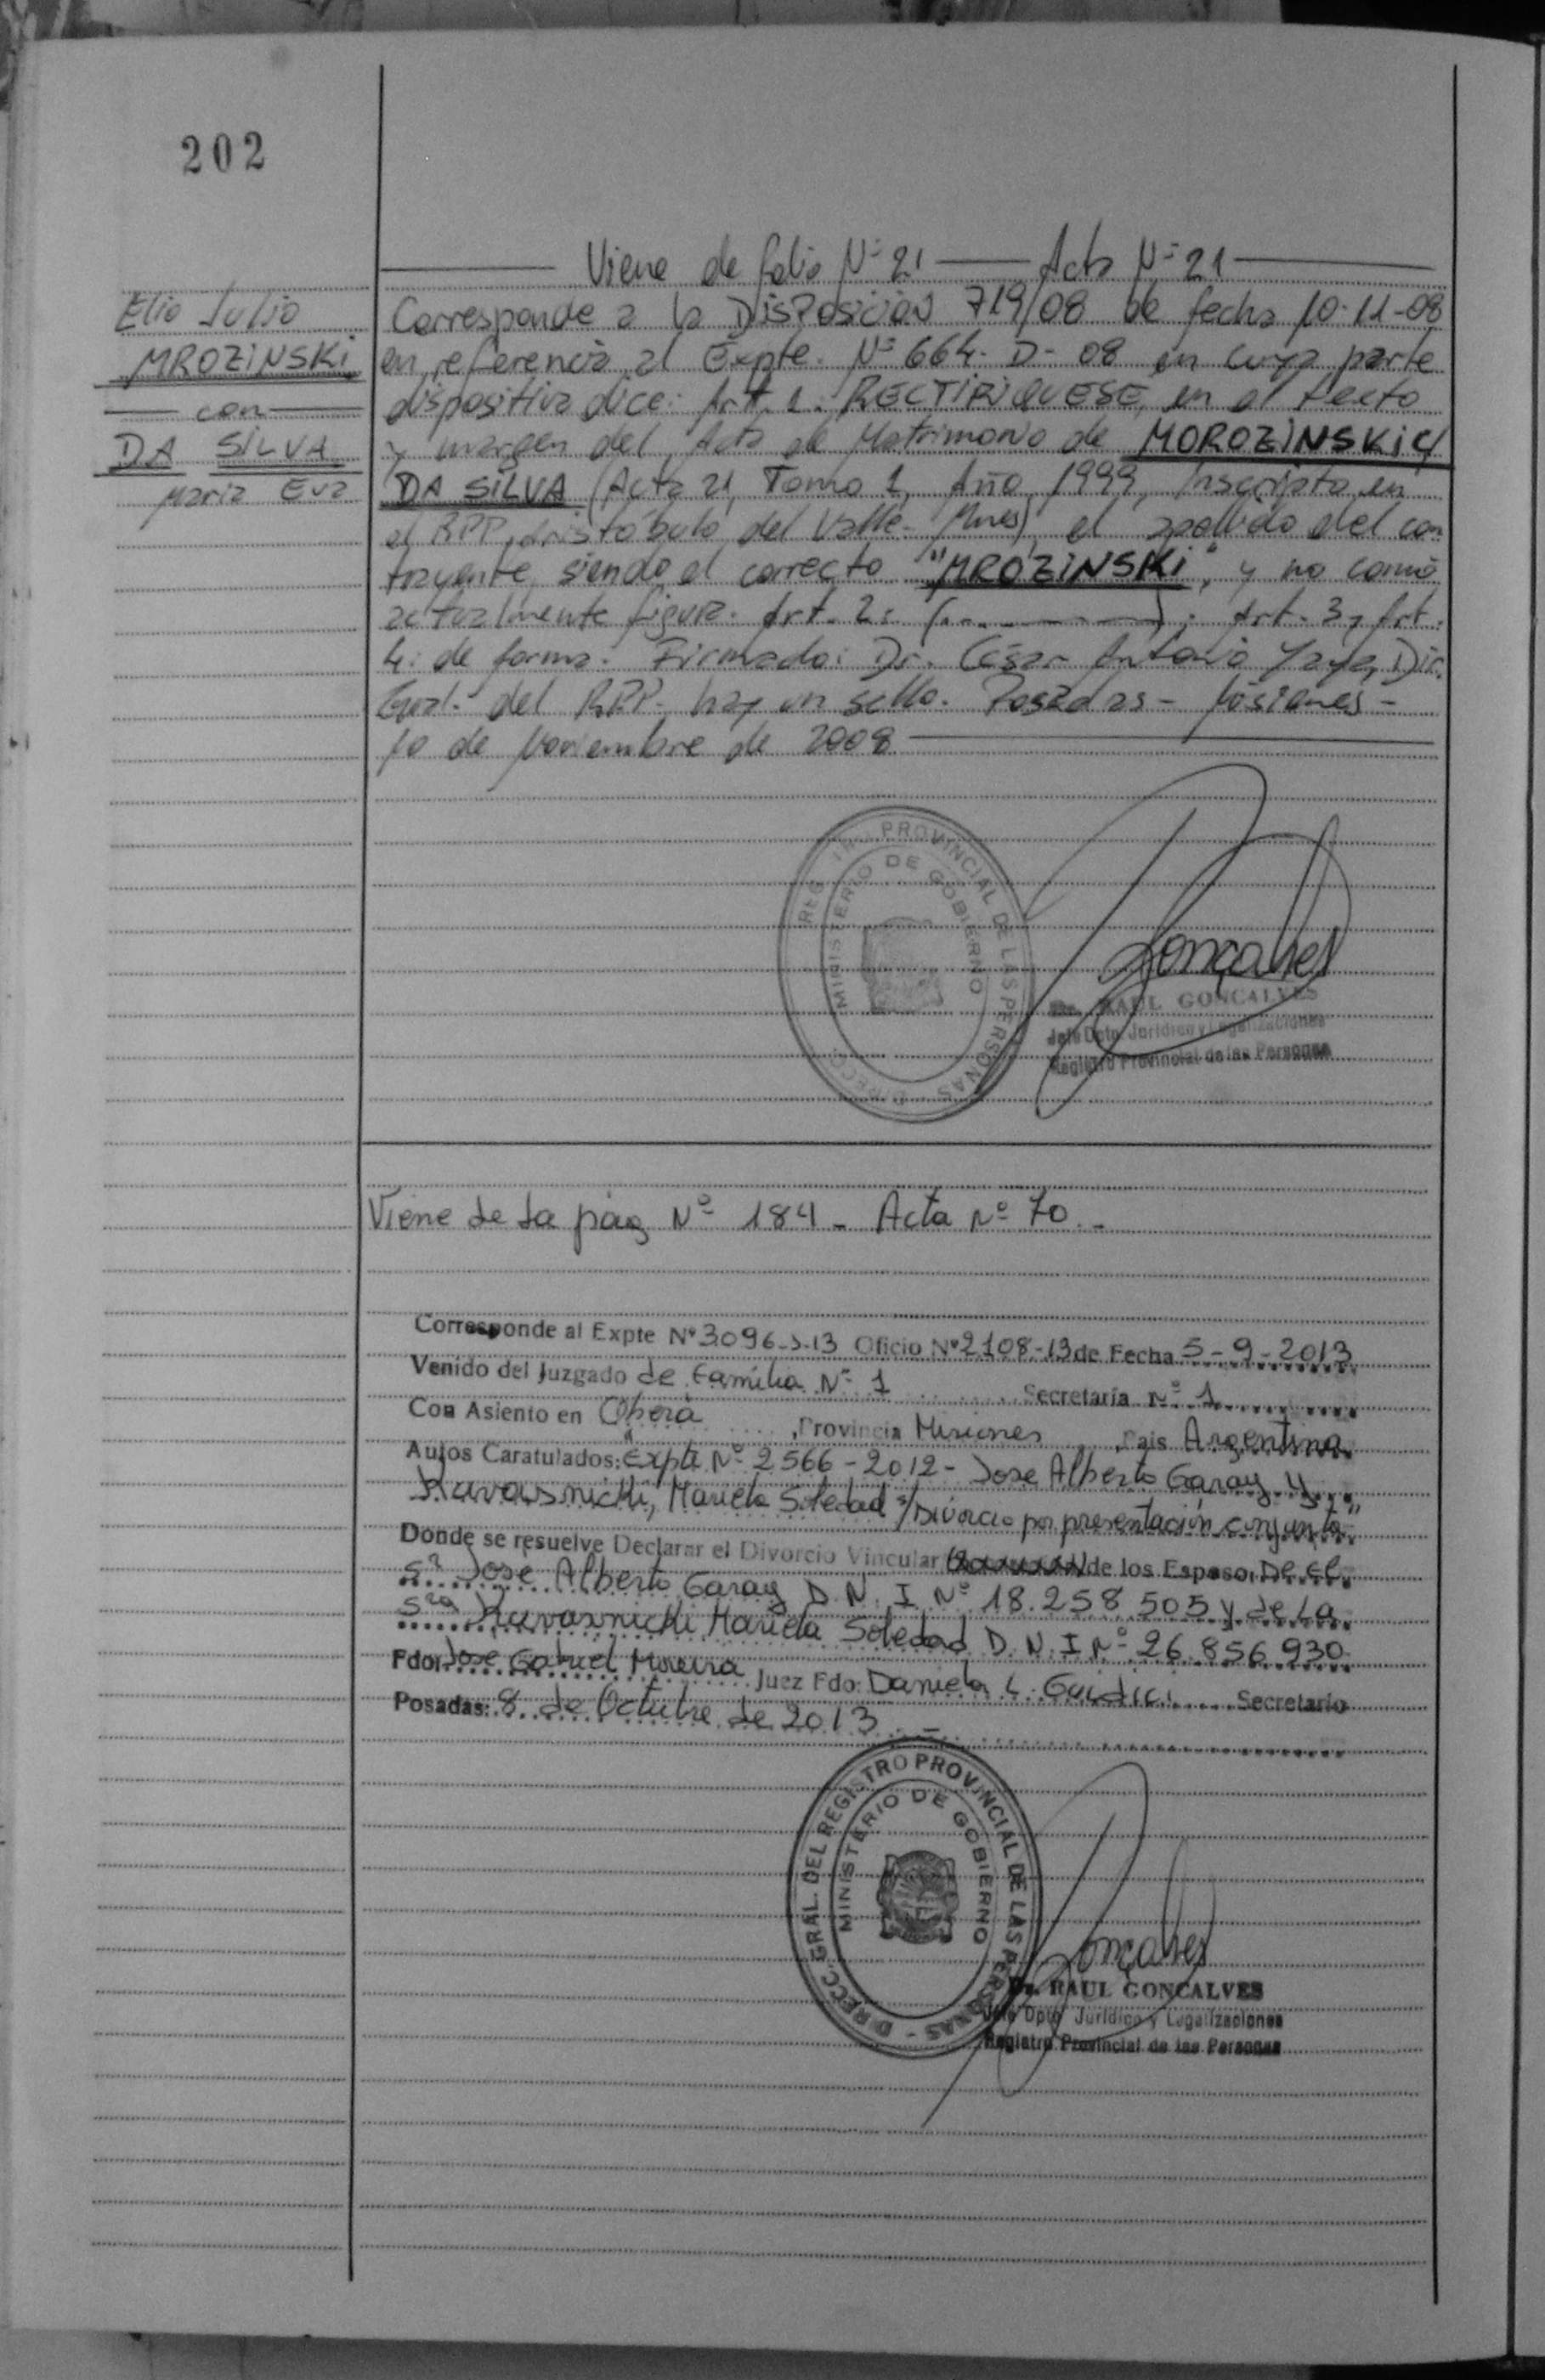 202
Viene de folio Nº 21 Acta Nº 21
Elio Julio
MROZINSKI
con
DA SILVA
Maria Eva
Corresponde a la Disposición 719/08 de fecha 10-11-08
en referencia al Expte. Nº 664-D-08 en cuya parte
dispositiva dice: Art. 1: RECTIFIQUESE, en el texto
y margen del Acta de Matrimonio de MOROZINSKI c/
DA SILVA (Acta 21, Tomo 1, Año 1999, Inscripta en
el RPP Aristóbulo del Valle- Mnes) el apellido del con
trayente siendo el correcto "MROZINSKI", y no como
actualmente figura. Art. 2: (...........). Art. 3 y Art.
4: de forma. Firmado: Dr. César Antonio Dir.
Gral. del RPP. hay un sello. Posadas - Misiones -
10 de Noviembre de 2008
REG PROVINCIAL DE LAS PERSONAS - DIRECC
MINISTERIO DE GOBIERNO
Goncalves
Dr. RAUL GONCALVES
Jefe Dpto. Jurídico y Legalizaciones
Registro Provincial de las Personas
Viene de la pág Nº 184 - Acta Nº 70 -
Corresponde al Expte Nº 3096-S-13 Oficio Nº 2108-13 de Fecha 5-9-2013
Venido del Juzgado de Familia Nº 1 Secretaría Nº 1
Con Asiento en Oberá, Provincia Misiones, País Argentina
Autos Caratulados: Expte Nº 2566-2012- Jose Alberto Garay y
Mariela Soledad s/Divorcio por presentación conjunta"
Donde se resuelve Declarar el Divorcio Vincular de los Esposo, De el
Sr José Alberto Garay D.N.I Nº 18.258.505 y de la
Sra Mariela Soledad D.N.I Nº 26.856.930
Fdo: Jose Gabriel Moreira Juez Fdo: Daniela L. Guidici Secretario
Posadas: 8 de Octubre de 2013 -
DIRECC. GRAL. DEL REGISTRO PROVINCIAL DE LAS PERSONAS -
MINISTERIO DE GOBIERNO
Goncalves
Dr. RAUL GONCALVES
Jefe Dpto. Jurídico y Legalizaciones
Registro Provincial de las Personas